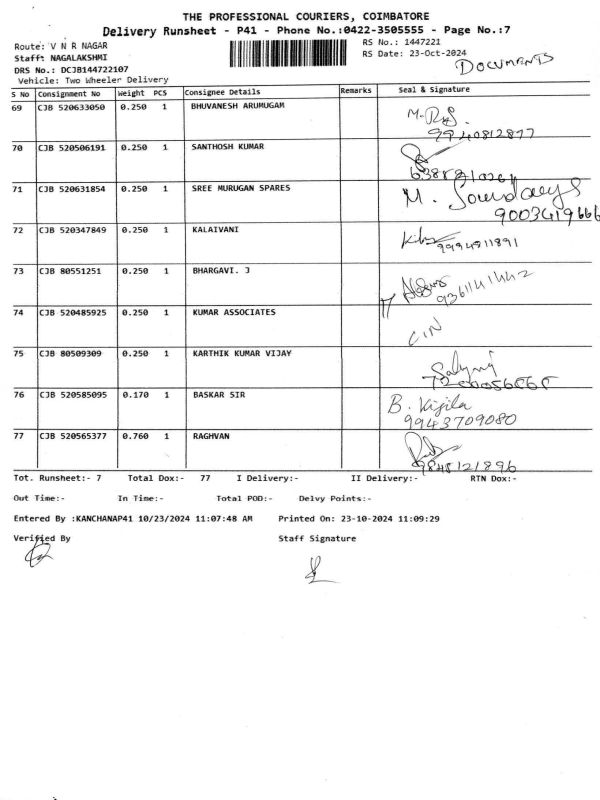 THE PROFESSIONAL COURIERS, COIMBATORE
Delivery Runsheet - P41 - Phone No.:0422-3505555 - Page No.:7
Route: V N R NAGAR RS No.: 1447221
Stafft NAGALAKSHMI RS Date: 23-Oct-2024
DRS No.: DCJB144722107 DOCUMENTS
Vehicle: Two Wheeler Delivery
S No Consignment No Weight PCS Consignee Details Remarks Seal & Signature
69 CJB 520633050 0.250 1 BHUVANESH ARUMUGAM
9940812877
70 CJB 520506191 0.250 1 SANTHOSH KUMAR
71 CJB 520631854 0.250 1 SREE MURUGAN SPARES M.
9003419666
72 CJB 520347849 0.250 1 KALAIVANI
9994911891
73 CJB 80551251 0.250 1 BHARGAVI. J
74 CJB 520485925 0.250 1 KUMAR ASSOCIATES
75 CJB 80509309 0.250 1 KARTHIK KUMAR VIJAY
76 CJB 520585095 0.170 1 BASKAR SIR B. Kijila
9943709080
77 CJB 520565377 0.760 1 RAGHVAN
9848121896
Tot. Runsheet:- 7 Total Dox:- 77 I Delivery:- II Delivery:- RTN Dox:-
Out Time:- In Time:- Total POD:- Delvy Points:-
Entered By :KANCHANAP41 10/23/2024 11:07:48 AM Printed On: 23-10-2024 11:09:29
Verified By Staff Signature